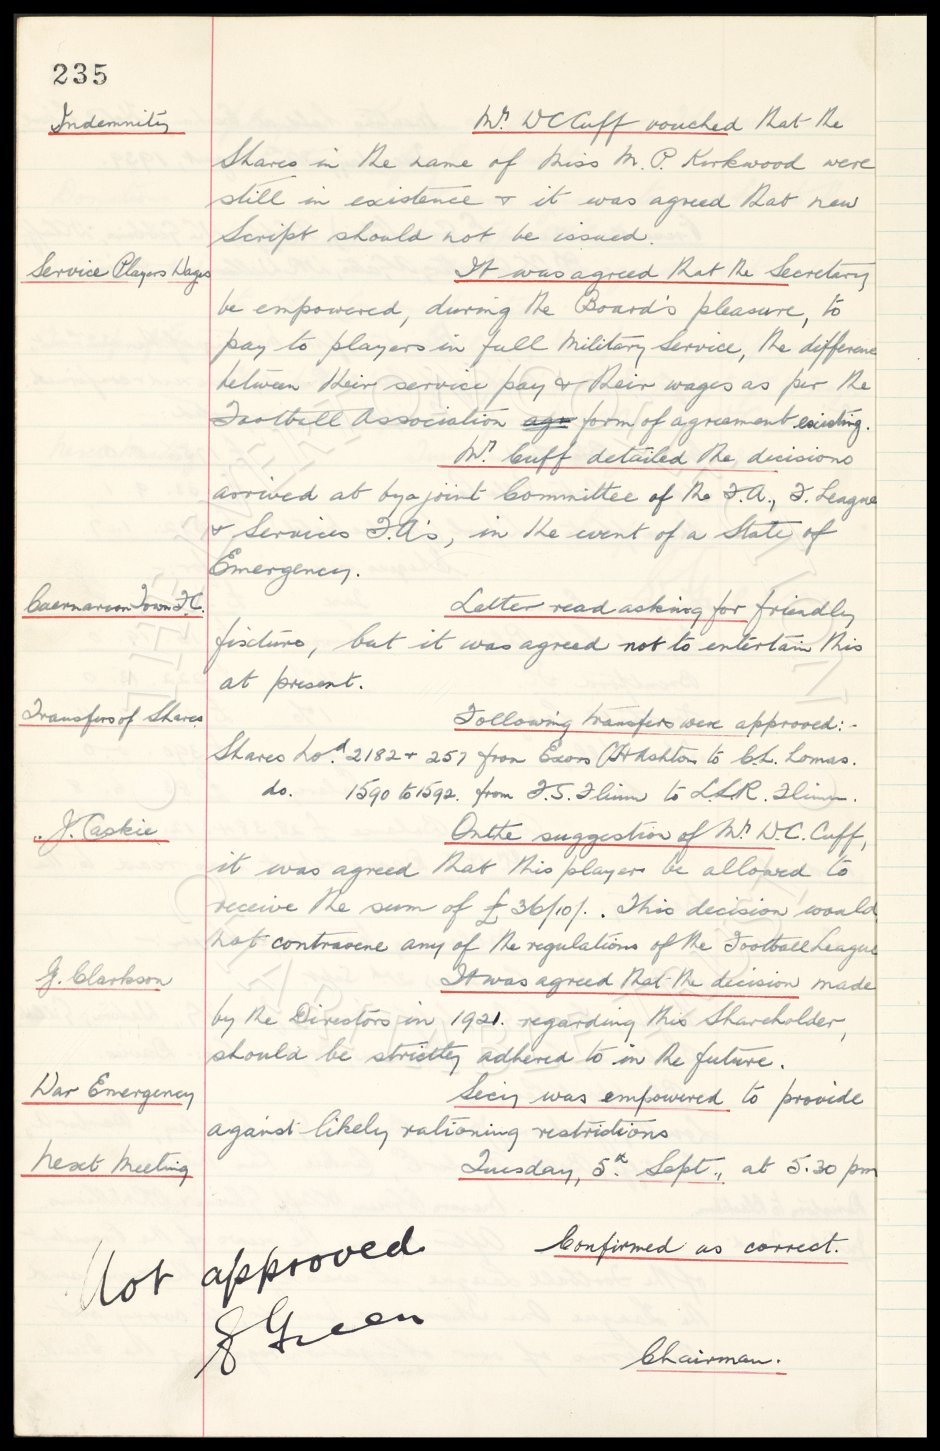 235
Indemnity Mr. W C Cuff vouched that the
Shares in the name of Miss M. P. Kirkwood were
still in existence & it was agreed that new
Script should not be issued.
Service Players Wages It was agreed that the Secretary
be empowered, during the Board's pleasure, to
pay to players in full Military Service, the difference
between their service pay & their wages as per the
Football Association agr form of agreement existing.
Mr. Cuff detailed the decisions
arrived at by a joint Committee of the F.A., F. League
& Services F.A's, in the event of a State of
Emergency.
Caernarvon Town F.C. Letter read asking for friendly
fixture, but it was agreed not to entertain this
at present.
Transfers of Shares Following transfers were approved:-
Shares Nod. 2182 & 257 from Exors Ashton to C.L. Lomas.
do. 1590 to 1592. from F.S. Flinn to L.L.R. Flinn.
J. Caskie On the suggestion of Mr W.C. Cuff,
it was agreed that this player be allowed to
receive the sum of £36/10/. . This decision would
not contravene any of the regulations of the Football League
G. Clarkson It was agreed that the decision made
by the Directors in 1921. regarding this Shareholder,
should be strictly adhered to in the future.
War Emergency Secy was empowered to provide
against likely rationing restrictions
Next Meeting Tuesday, 5th Sept., at 5.30 pm
Confirmed as correct.
Not approved
Green
Chairman.